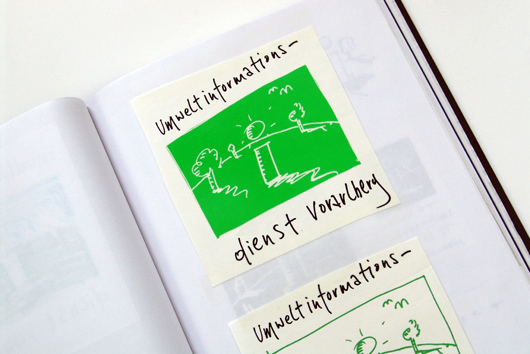 Umweltinformations-
dienst Vorarlberg
Umweltinformations-